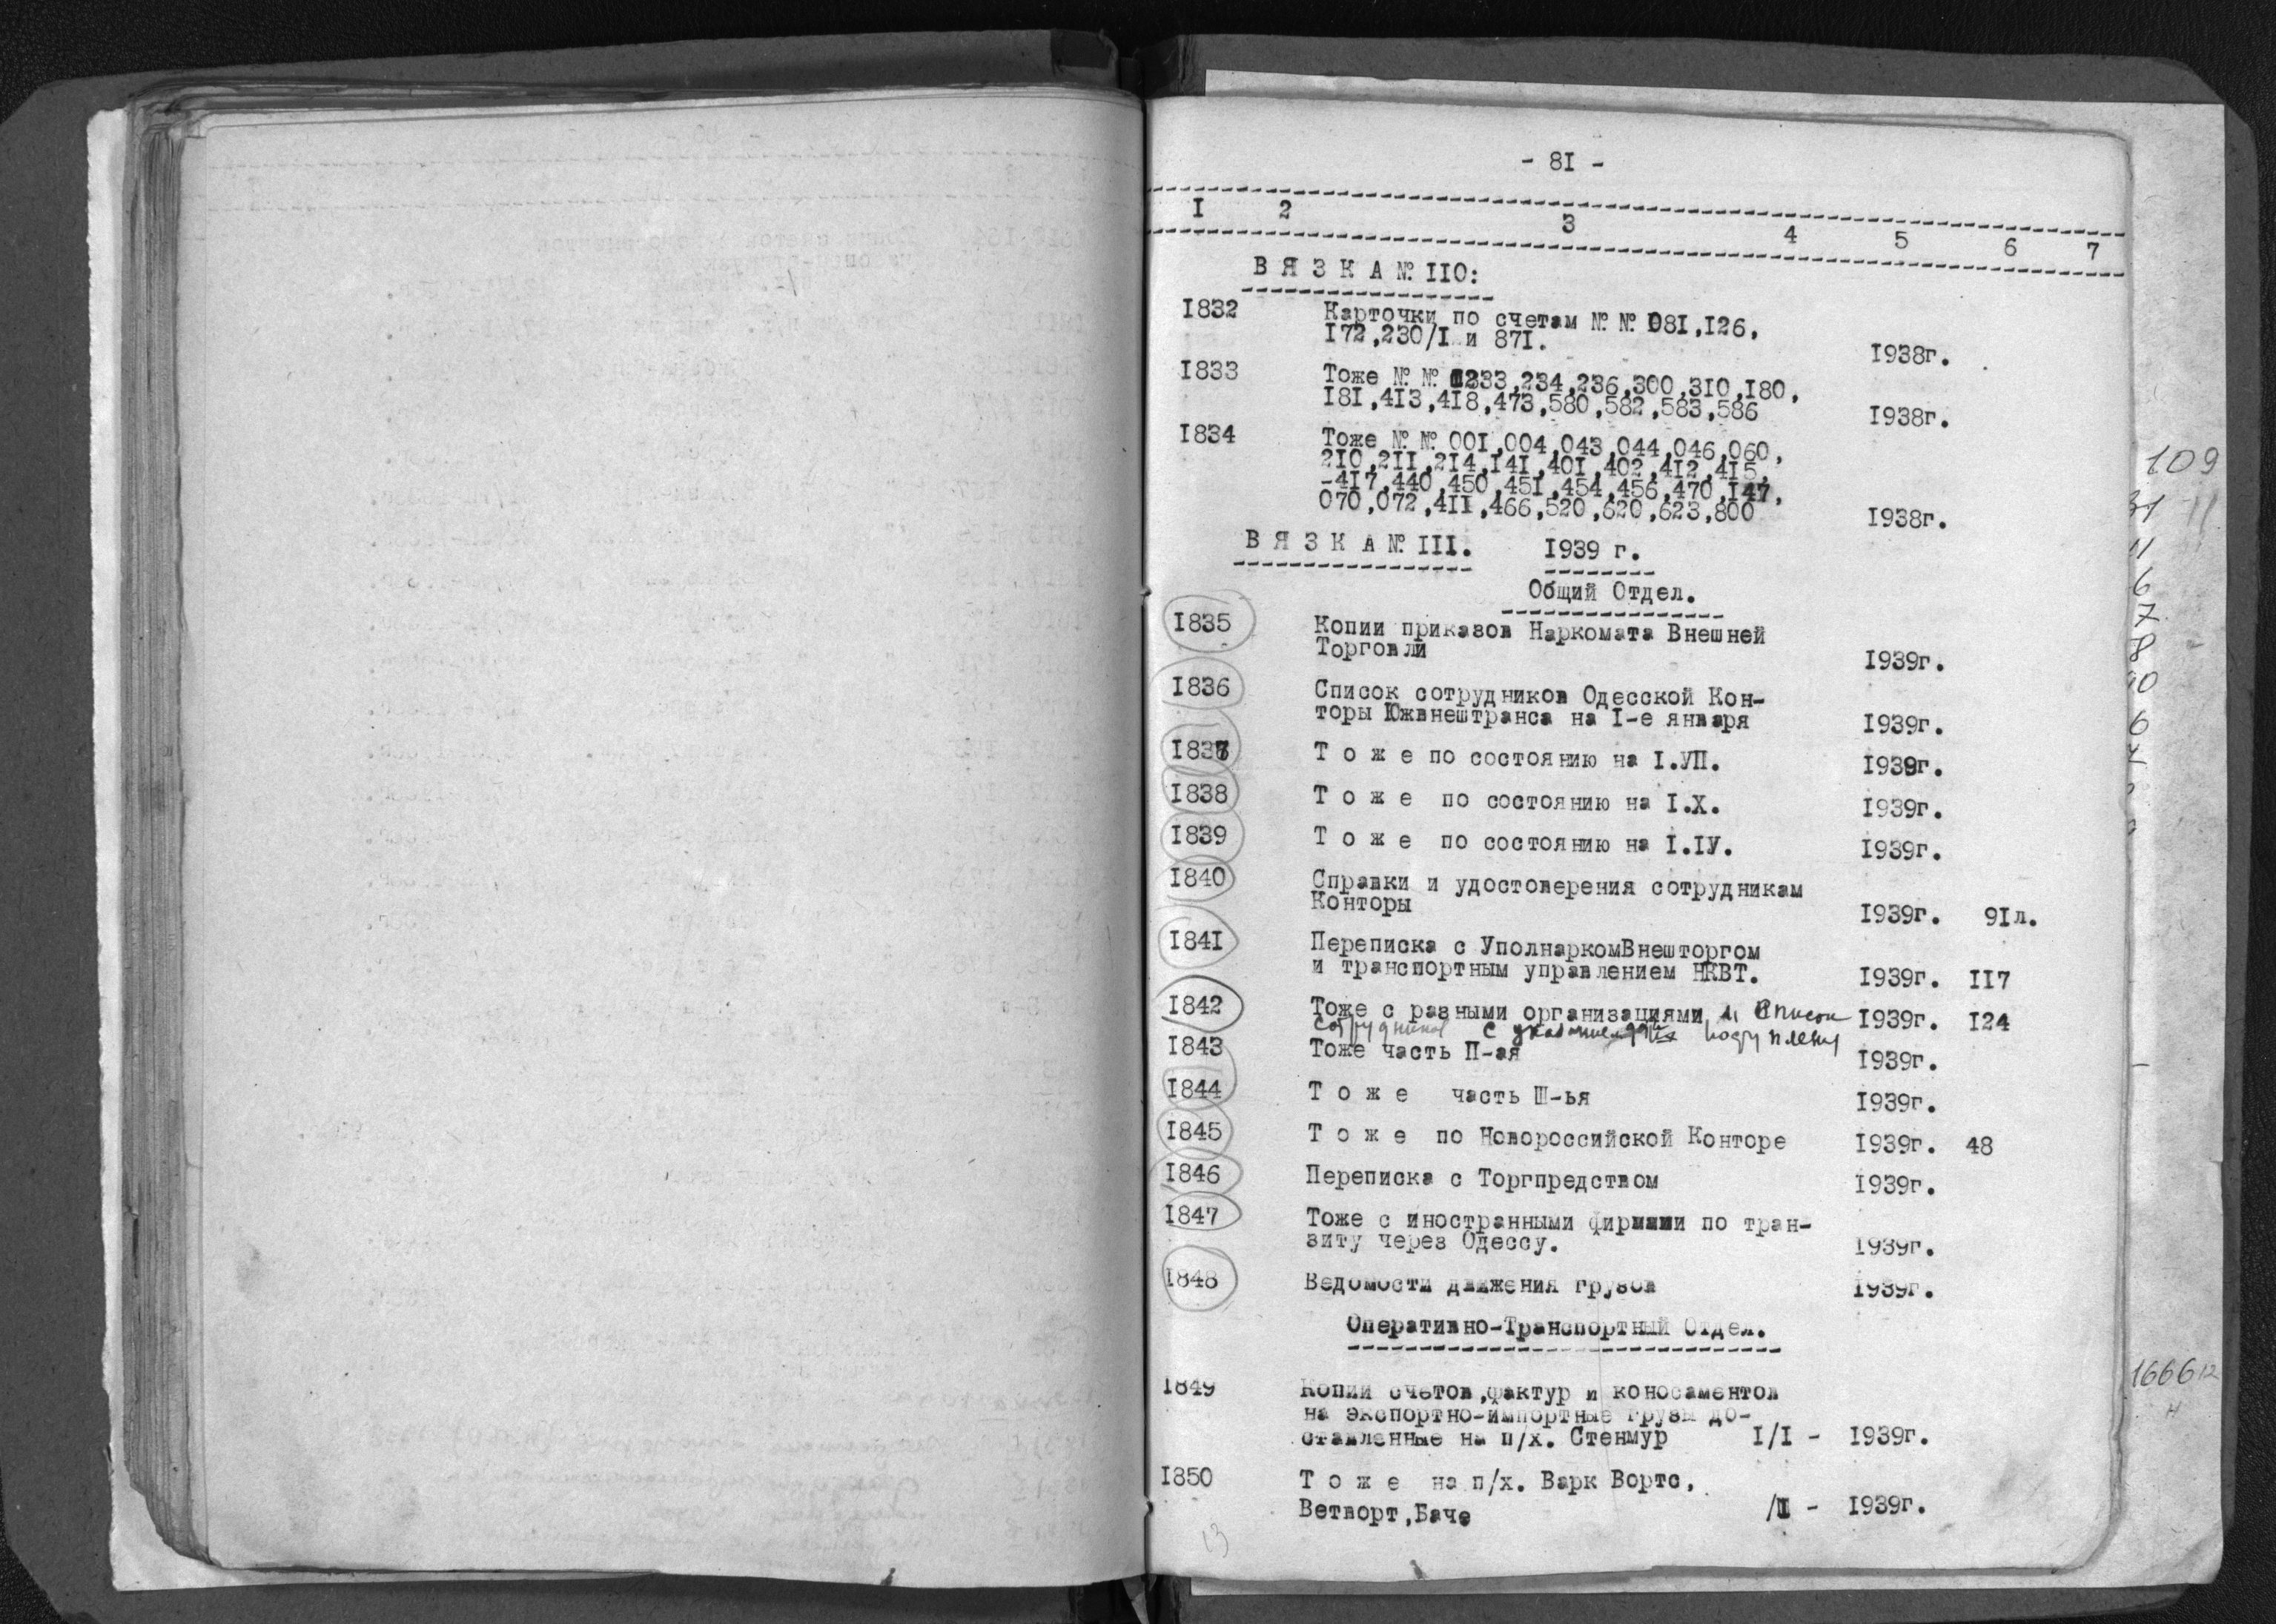 - 8I -
I 2 3 4 5 6 7
В Я З К А № IIO:
I832 Карточки по счетам № № 08I,I26,
I72,230/I и 87I. I938г.
I833 Тоже № № 233,234,236,300,3I0,I80,
I8I,4I3,4I8,473,580,582,583,586 I938г.
I834 Тоже № № 00I,004,043,044,046,060,
2I0,2II,2I4,I4I,40I,402,4I2,4I5,
-4I7,440,450,45I,454,456,470,I47,
070,072,4II,466,520,620,623,800 I938г.
В Я З К А № III. I939 г.
Общий Отдел.
I835 Копии приказов Наркомата Внешней
Торговли I939г.
I836 Список сотрудников Одесской Кон-
торы Южвнештранса на I-е января I939г.
I837 Т о ж е по состоянию на I.УП. I939г.
I838 Т о ж е по состоянию на I.Х. I939г.
I839 Т о ж е по состоянию на I.IУ. I939г.
I840 Справки и удостоверения сотрудникам
Конторы I939г. 9Iл.
I84I Переписка с УполнаркомВнешторгом
и транспортным управлением НКВТ. I939г. II7
I842 Тоже с разными организациями и список I939г. I24
сотрудников с указанием
I843 Тоже часть П-ая I939г.
I844 Т о ж е часть Ш-ья I939г.
I845 Т о ж е по Новороссийской Конторе I939г. 48
I846 Переписка с Торгпредством I939г.
I847 Тоже с иностранными фирмами по тран-
зиту через Одессу. I939г.
I848 Ведомости движения грузов I939г.
Оперативно-Транспортный Отдел.
I849 Копии счетов,фактур и коносаментов
на экспортно-импортные грузы до-
ставленные на п/х. Стенмур I/I - I939г.
I850 Т о ж е на п/х. Варк Вортс,
Ветворт,Баче /I - I939г.
13
109
31
11
6
7
8
10
6
1666